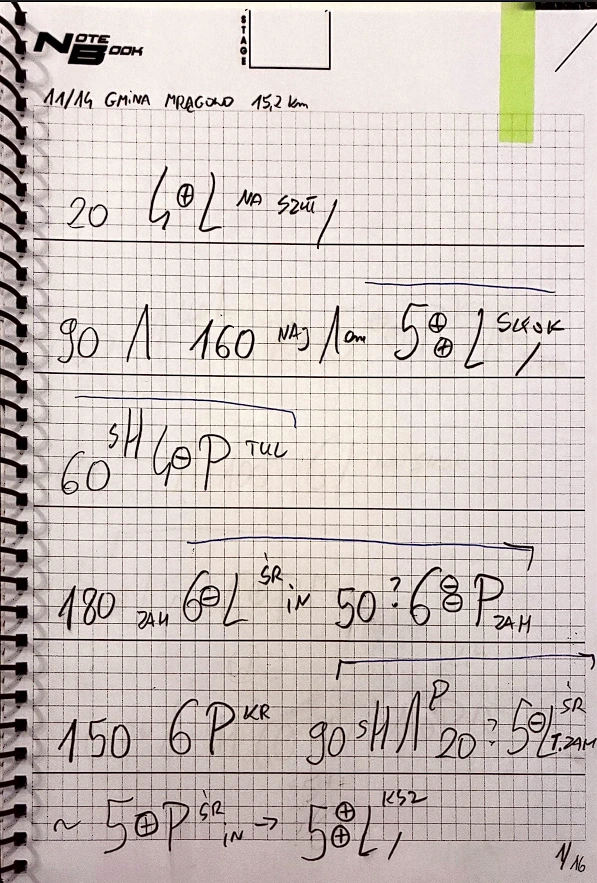 NOTE BOOK
STAGE
11/14 GMINA MRĄGOWO 15,2 km
20 4⊕L NA SZUT /
90 /\ 160 NAJ /\ on 5⊕⊕L SKOK /
60 sH 4⊖P TUL
180 ZAH 6⊖L ŚR iN 50 ? 6⊖⊖P ZAH
150 6P KR 90 sH /\ P 20 ? 5⊖L ŚR T.ZAH
~ 5⊕P ŚR iN → 5⊕⊕L, KSZ
1/16